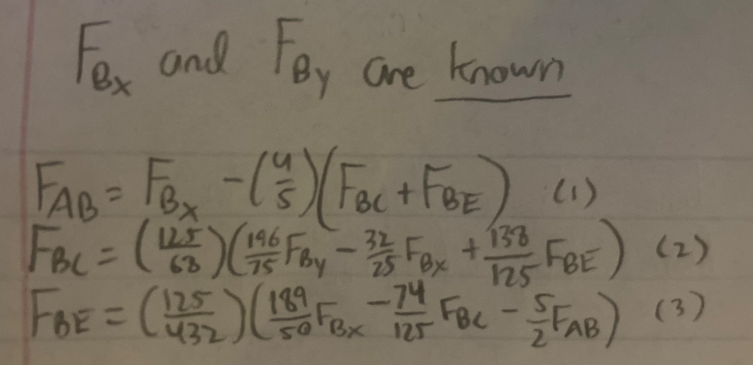 F_Bx and F_By are known
F_AB = F_Bx - (4/5)(F_BC + F_BE) (1)
F_BC = (125/68)(196/75 F_By - 32/25 F_Bx + 138/125 F_BE) (2)
F_BE = (125/432)(189/50 F_Bx - 74/125 F_BC - 5/2 F_AB) (3)